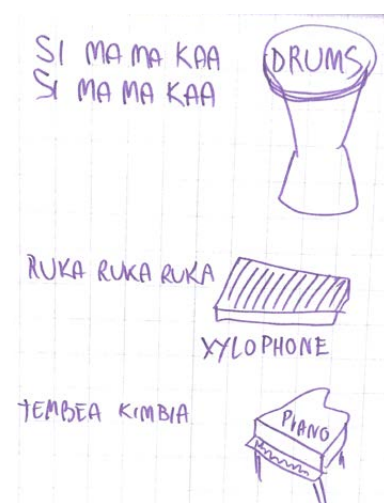 SI MA MA KAA
SI MA MA KAA
DRUMS
RUKA RUKA RUKA
XYLOPHONE
TEMBEA KIMBIA
PIANO